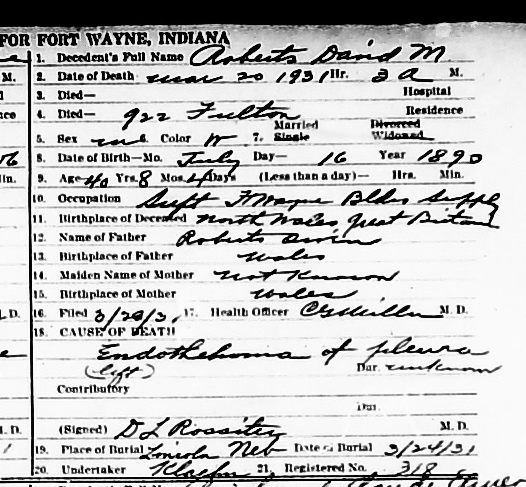 FOR FORT WAYNE, INDIANA
1. Decedent's Full Name Roberts David M
2. Date of Death Mar 20 1931 Hr. 3 A M.
3. Died— Hospital
4. Died— 922 Fulton Residence
Married Divorced
5. Sex m 6. Color W 7. Single Widowed
8. Date of Birth—Mo. July Day— 16 Year 1890
9. Age 40 Yrs. 8 Mos. 4 Days (Less than a day)— Hrs. Min.
10. Occupation Supt Ft Wayne Bldrs Supply
11. Birthplace of Deceased North Wales, Great Britain
12. Name of Father Roberts Owen
13. Birthplace of Father Wales
14. Maiden Name of Mother Not Known
15. Birthplace of Mother Wales
16. Filed 3/23/31 17. Health Officer M. D.
18. CAUSE OF DEATH
Endothelioma of pleura
(left) Dur. unknown
Contributory
Dur.
(Signed) D L Rossiter M. D.
19. Place of Burial Lincoln Neb Date of Burial 3/24/31
20. Undertaker Klaehn 21. Registered No. 318